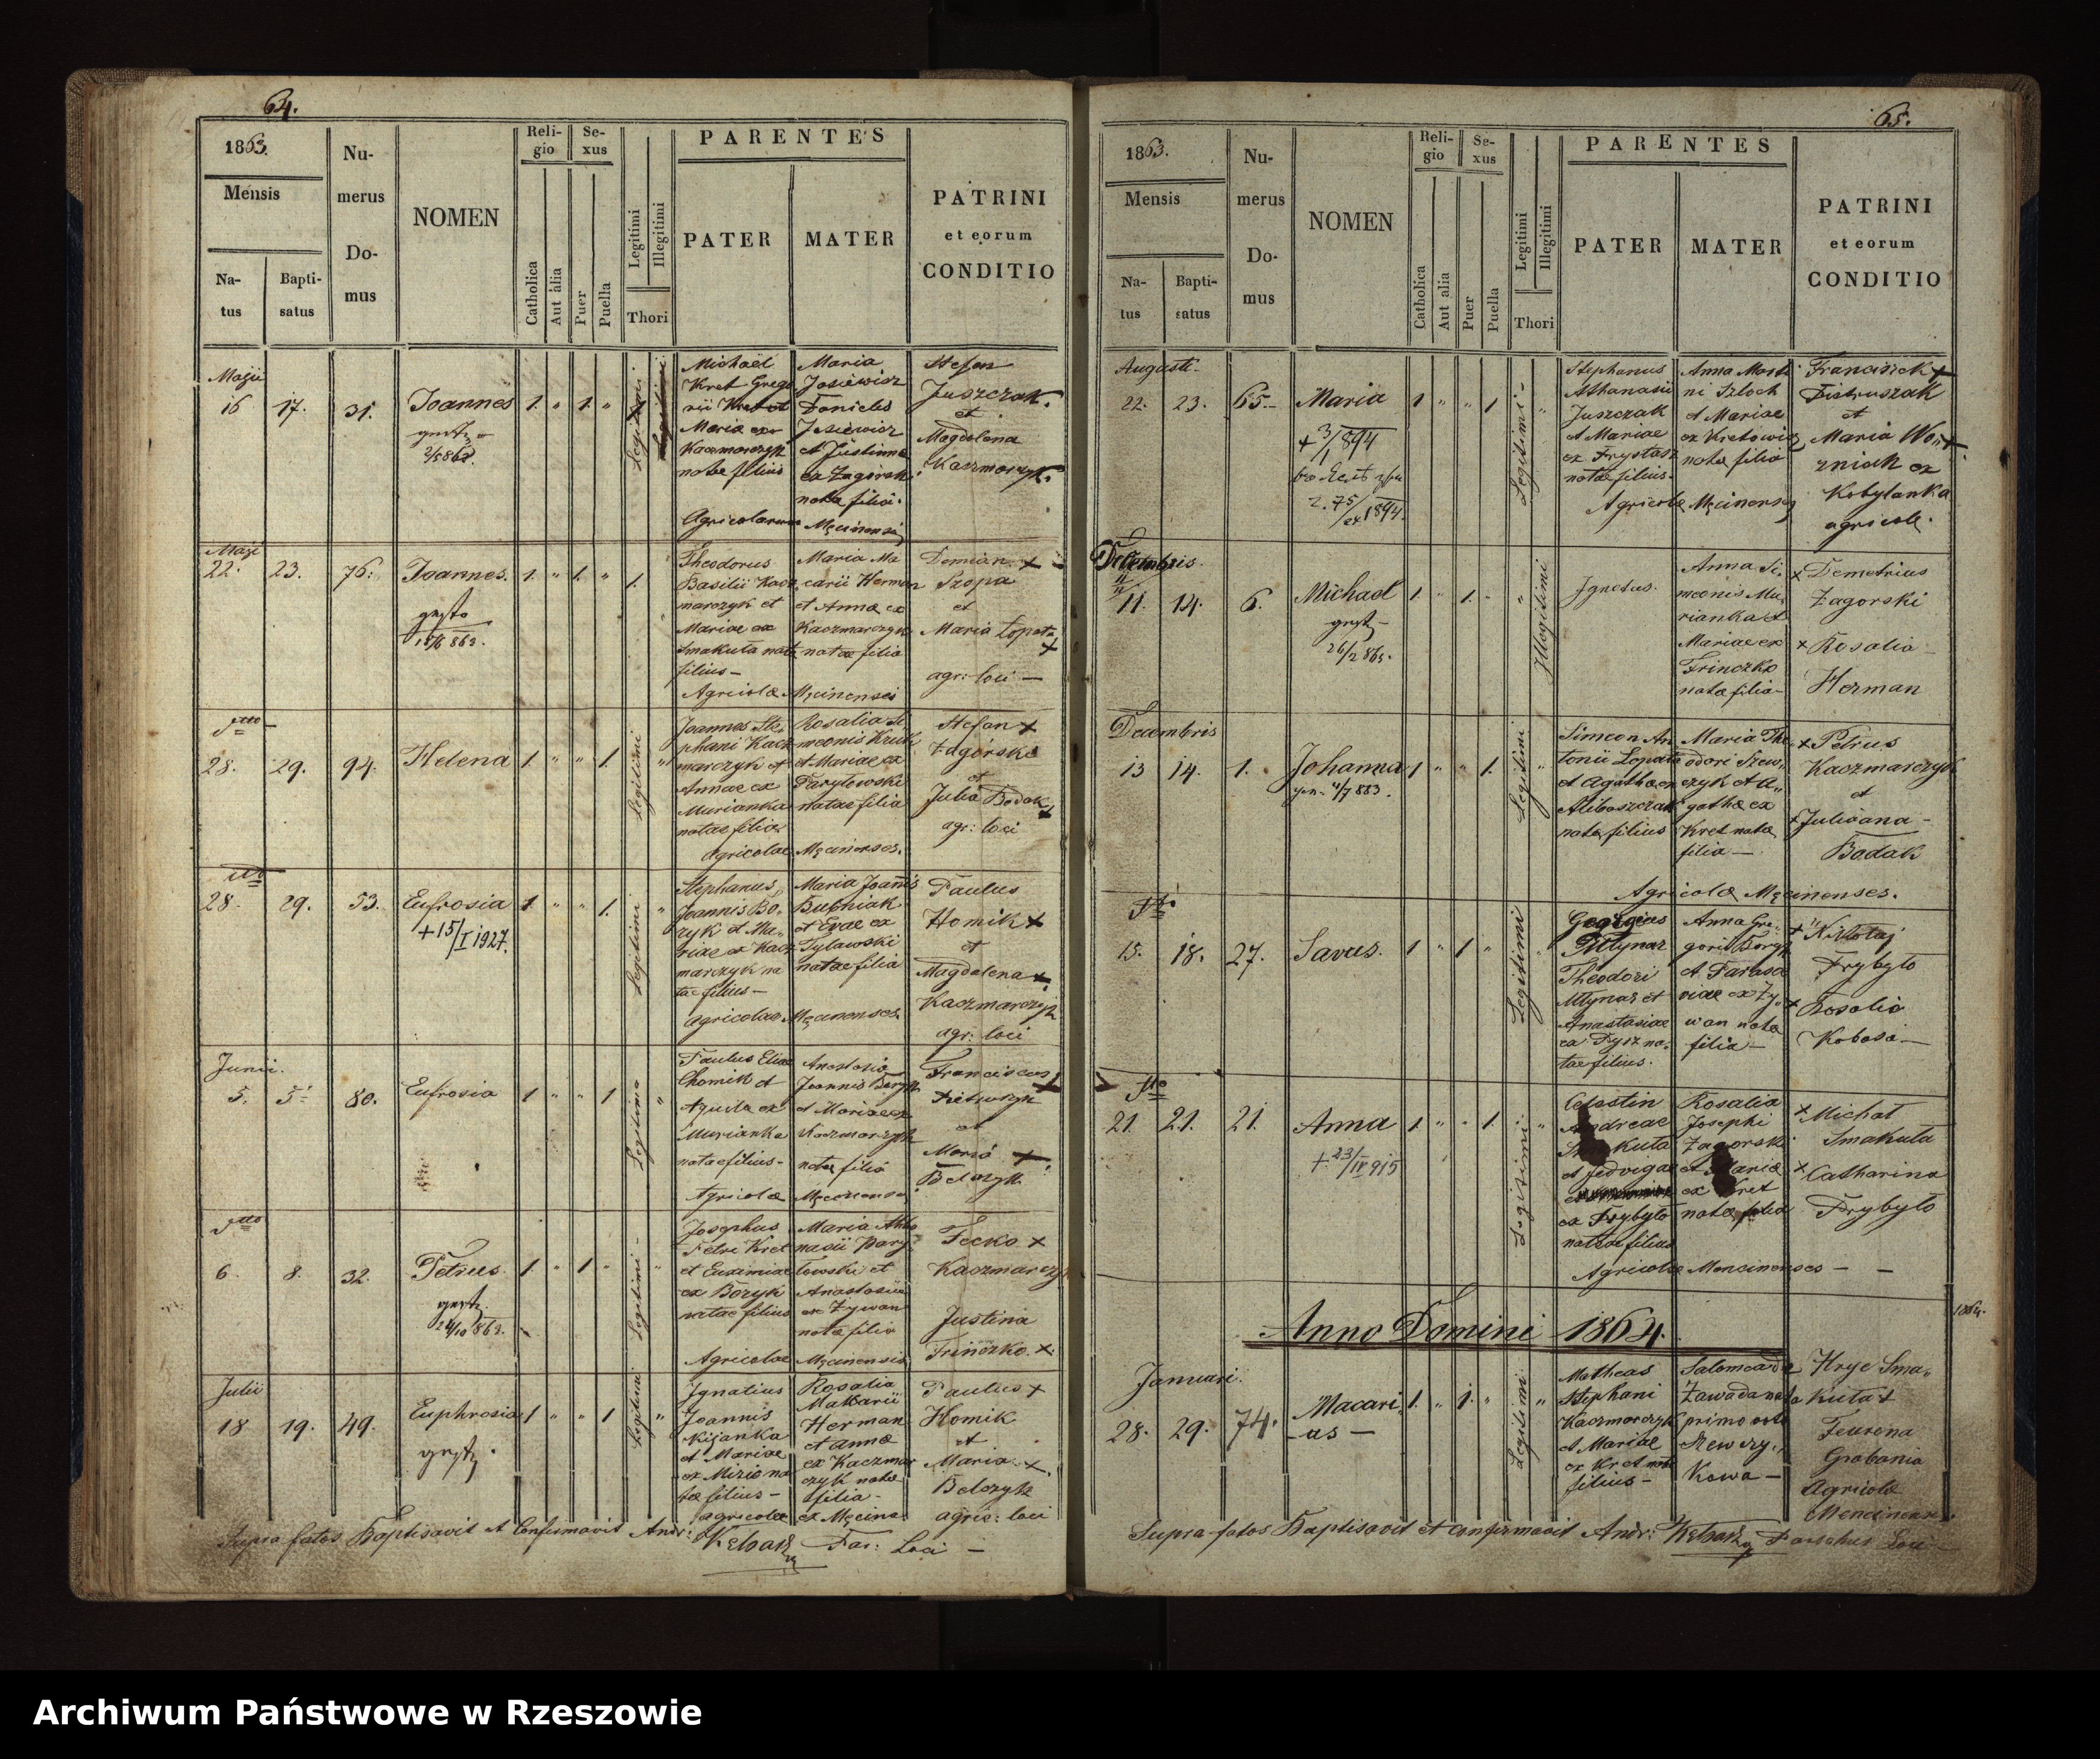 64.
1863.
Mensis
Na-
tus
Bapti-
satus
Nu-
merus
Do-
mus
NOMEN
Reli-
gio
Catholica
Aut alia
Se-
xus
Puer
Puella
Legitimi
Illegitimi
Thori
PARENTES
PATER
MATER
PATRINI
et eorum
CONDITIO
Majii
16 17. 31. Joannes 1. " 1. "
Legitimi
Michael
Kret Grego
rii Kret et
Maria ex
Kaczmarczyk
natae filius
Maria
Josiewicz
Danielis
Josiewicz
et Justinna
ex Zagorski
nata filia.
Agricolarum Męcinensis
Stefan
Juszczak.
et
Magdalena
Kaczmarczyk.
Maji
22. 23. 76. Joannes. 1. " 1. " 1.
Theodorus
Basilii Kacz
marczyk et
Mariae ex
Smakuła natae
filius —
Maria Ma
carii Herman
et Annae ex
Kaczmarczyk
natae filia
Agricolae Męcinenses
Demian +
Szopa
et
Maria Łopata
+
agr: loci —
dtto
28. 29. 94. Helena 1. " " 1.
Legitimi
"
Joannes Ste-
phani Kacz
marczyk et
Annae ex
Murianka
natae filius
Rosalia Si
meonis Kruk
et Mariae ex
Parylowski
natae filia
Agricolae Męcinenses.
Stefan +
Zagorski
et
Julia Bodak
+
agr: loci
dtto
28. 29. 53. Eufrosia 1. " " 1.
+ 15/I 1927.
Legitimi
"
Stephanus
Joannis Bo-
ryk et Ma-
riae ex Kacz
marczyk na
tae filius —
Maria Joannis
Bubniak
et Evae ex
Tylawski
natae filia
agricolae Męcinenses.
Paulus
Homik +
et
Magdalena +
Kaczmarczyk
agr: loci
Junii.
5. 5. 80. Eufrosia 1 " " 1
Legitima
"
Paulus Eliae
Chomik et
Aquila ex
Murianka
natae filius -
Anastasia
Joannis Boryk
et Mariae ex
Kaczmarczyk
natae filia
Agricolae
Franciscus
+
et
Maria +
Belczyk
dtto
6. 8. 32. Petrus. 1. " 1 "
24/10 863.
Legitimi -
"
Josephus
Petri Kret
et Euximiae
ex Boryk
natae filius
Maria Atha
nasii Pary
lowski et
Anastasiae
ex Żywan
nata filia
Agricolae Męcinensis
Fecko +
Kaczmarczyk
Justina
Frinczko. +
Julii
18 19. 49. Euphrosia 1 " " 1
Legitimi
"
Ignatius
Joannis
Kijanka
et Mariae
ex Mizio na
tae filius —
Rosalia
Makarii
Herman
et Annae
ex Kaczmar
czyk nata
filia -
agricolae ex Męcina
Paulus +
Homik
et
Maria +
Belczyk
agric: loci
Supra fatos Baptisavit et Confirmavit Andr: Par: Loci —
65.
1863.
Mensis
Na-
tus
Bapti-
satus
Nu-
merus
Do-
mus
NOMEN
Reli-
gio
Catholica
Aut alia
Se-
xus
Puer
Puella
Legitimi
Illegitimi
Thori
PARENTES
PATER
MATER
PATRINI
et eorum
CONDITIO
Augusti.
22. 23. 65. Maria 1 " " 1
Legitimi -
"
Stephanus
Athanasii
Juszczak
et Mariae
ex Frystasz
natae filius.
Anna Marti
ni Szloch
et Mariae
ex Kretowicz
nata filia
Agricolae Męcinenses
Francisick +
Pietruszak
et
Maria Wo,, +
zniak ex
Kobylanka
agricole.
Decembris.
11. 14. 6. Michael 1. " 1. "
26/2 865.
"
Illegitimi
Ignotus.
Anna Si-
meonis Mu,
rianka et
Mariae ex
Frinczko
nata filia —
+ Demetrius
Zagorski
+ Rosalia —
Herman
Decembris
13 14. 1. Johanna 1 " " 1.
Legitimi
"
Simeon An
tonii Łopata
et Agatha ex
natae filius
Maria The
odori Szew,
czyk et A,,
gathae ex
Kret nata
filia —
Agricolae Męcinenses.
+ Petrus
Kaczmarczyk
et
+ Julianna -
Bodak
dtto
15. 18. 27. Savus. 1 " 1 "
Legitimi
Georgius
Młynar
Theodori
Młynar et
Anastasiae
ex Pysz na-
tae filius.
Anna Gre-
gorii Boryk
et Paras
viae ex Ży,
wan nata
filia —
+ Nikołaj
Frybyło
+ Rosalia
Kobasa —
dto
21. 21. 21. Anna 1. " " 1.
+ 23/IV 915
Legitimi
"
Celestin
Andreae
Smakuła
et Jedvigae
ex Frybyło
natae filius
Rosalia
Josephi
Zagorski
et Maria
ex Kret
nata filia
Agricolae Mencinenses — —
+ Michał
Smakuła
+ Catharina
Frybyło
Anno Domini 1864.
1864.
Januari.
28. 29. 74. Macari,
as —
1. " 1. "
Legitimi
"
Matheas
Stephani
Kaczmarczyk
et Mariae
ex Kret natae
filius —
Salomea de
Zawada nata
primo voto
Szewczy,,
kowa —
Hryc Sma,,
kuła +
Teurena
Grabania
Agricolae
Mencinenses.
Supra fatos Baptisavit et confirmavit Andr: Parochus Loci —
Archiwum Państwowe w Rzeszowie